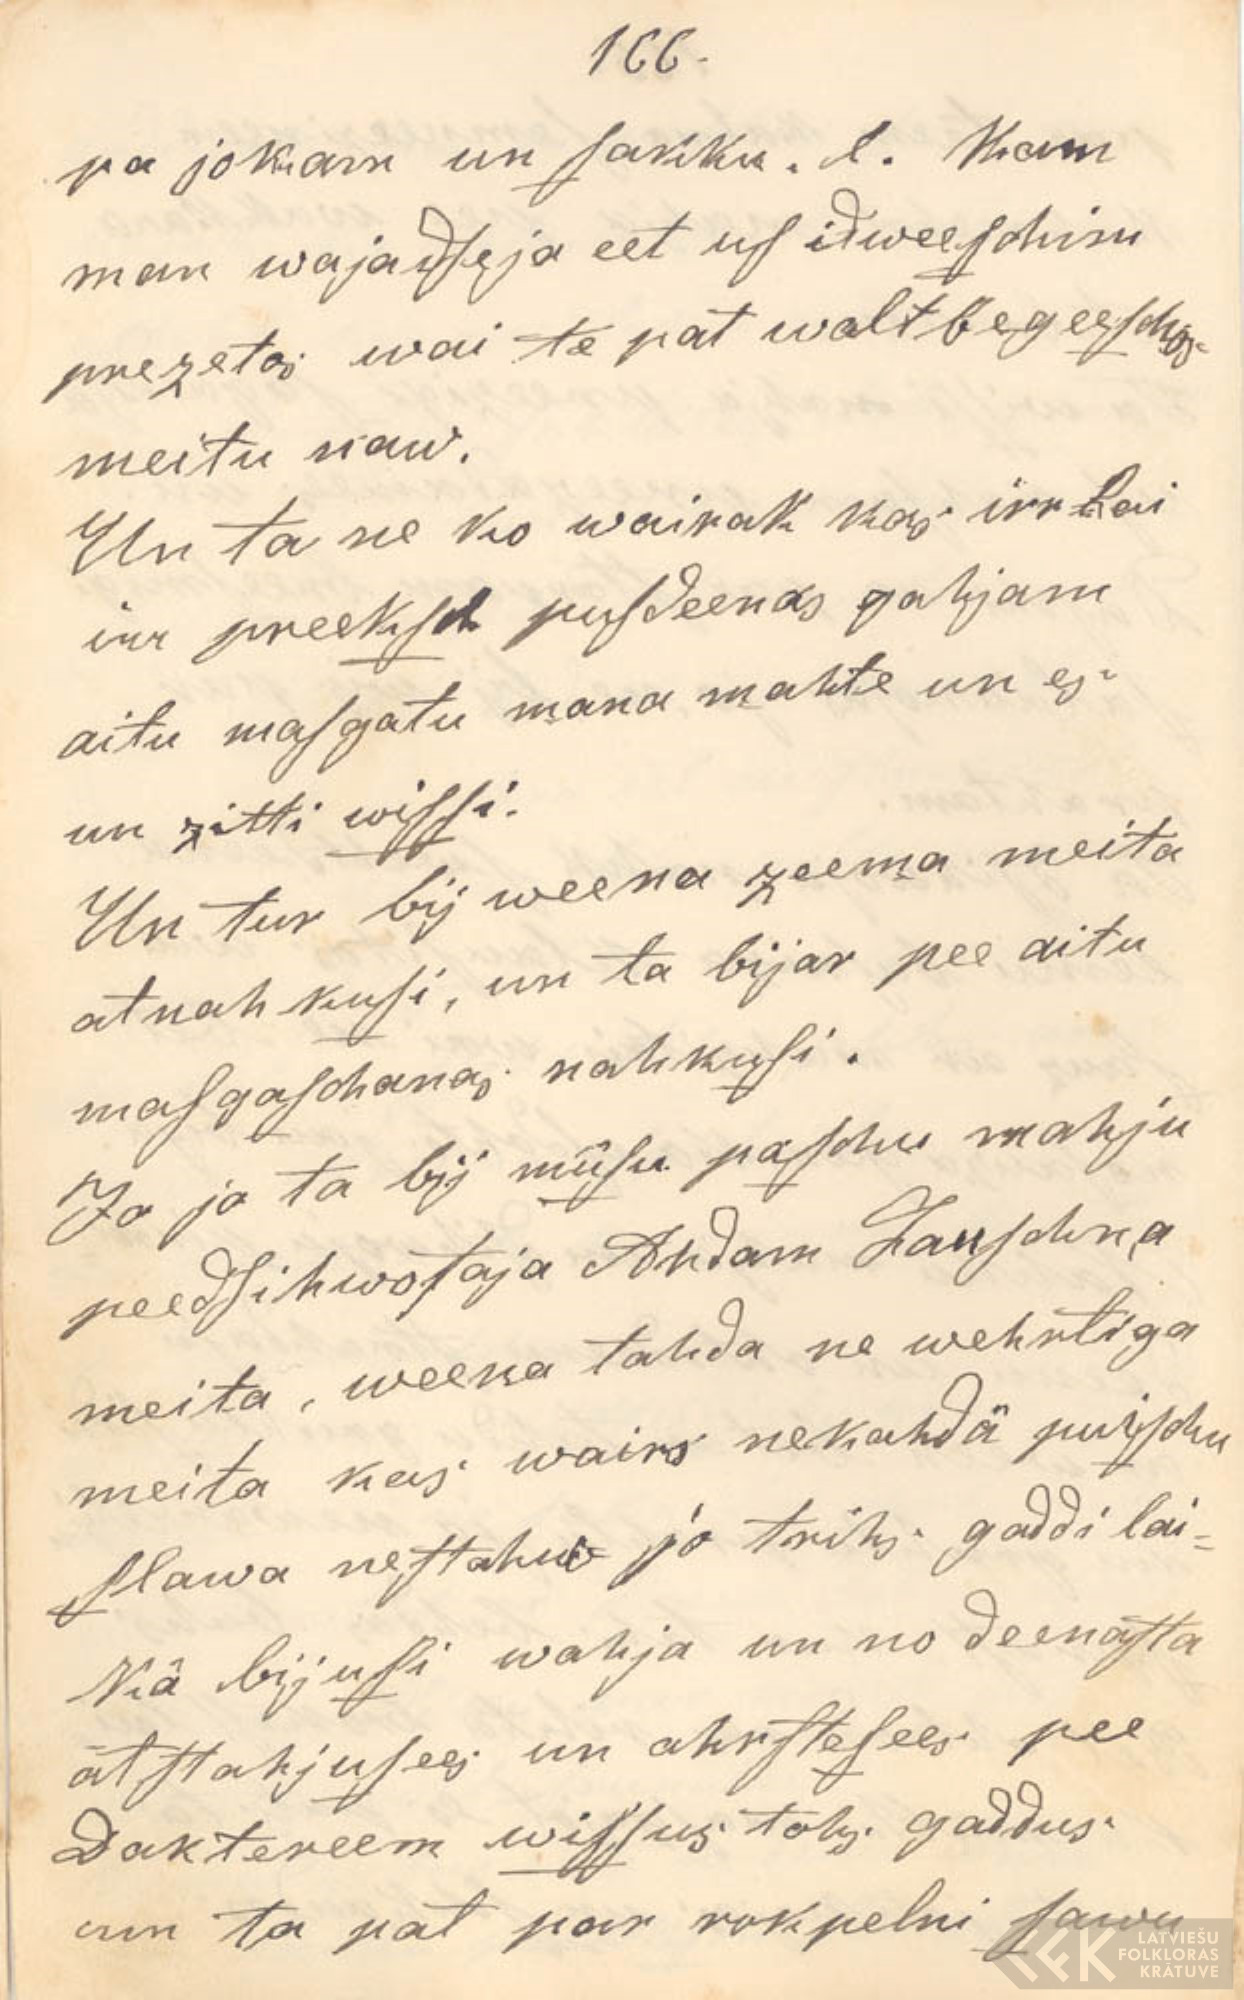 166.
pa jokam un sakku. l. Kam
man wajadseja eet us idweeschim
prezetos wai te pat walt begeeschs
meitu naw.
Un ta ne ko wairak kas irr Lai
irr preeksch pusdeenas gahjam
aitu masgatu mana mahte un es
un zitti wissi.
Un tur bij weena zeema meita
atnahkusi, un ta bijar pee aitu
masgaschanas nahkusi.
Jo jo ta bij mūsu paschu mahju
peedsihwotaja Ahdam Zauschna
meita, weena tahda ne wehrtiga
meita kas wairs nekahdā puischu
slawa nestahw jo trihs gaddi lai-
kâ bijusi wahja un no deenasta
atstahjusees un ahrstesees pee
Daktereem wissus tohs gaddus
un ta pat par rokpelni sawu
LATVIEŠU
FOLKLORAS
KRĀTUVE